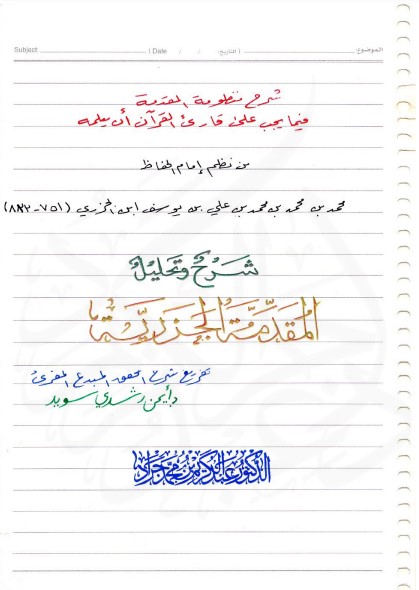 Subject  ( Date / / التاريخ: )  الموضوع:
شرح منظومة المقدمة
فيما يجب على قارئ القرآن أن يعلمه
من نظم إمام الحفاظ
محمد بن محمد بن محمد بن علي بن يوسف ابن الجزري (٧٥١-٨٣٣)
شَرْحُ وَتَحْلِيلُ
المُقَدِّمَةُ الجَزَرِيَّةُ
تفريغ شرح المحقق المبدع المقرئ
د/أيمن رشدي سويد
الدكتور عبد الكريم بن محمد جراد